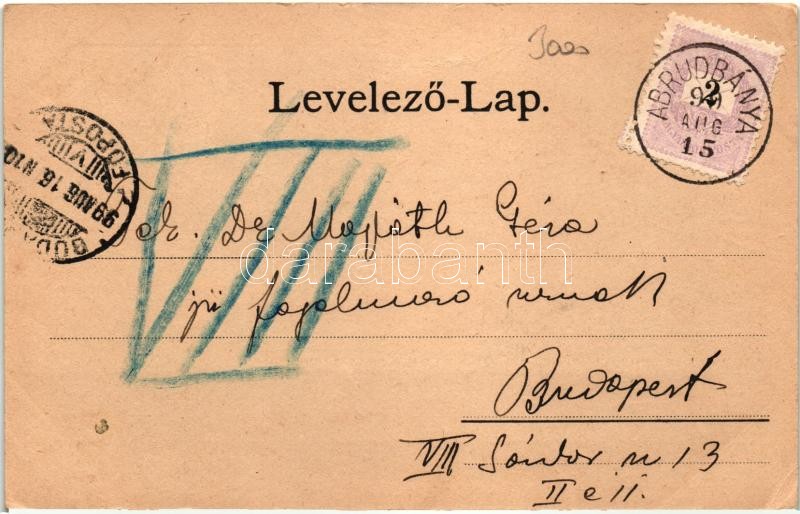 Levelező-Lap.
ABRUDBÁNYA
2
99
AUG
15
BUDA
99 AUG 16
FŐPOSTA
VIII
Tek. Dr Géza
fogalmazó urnak
Budapest
VIII Sándor u 13
II e 11.
darabanth